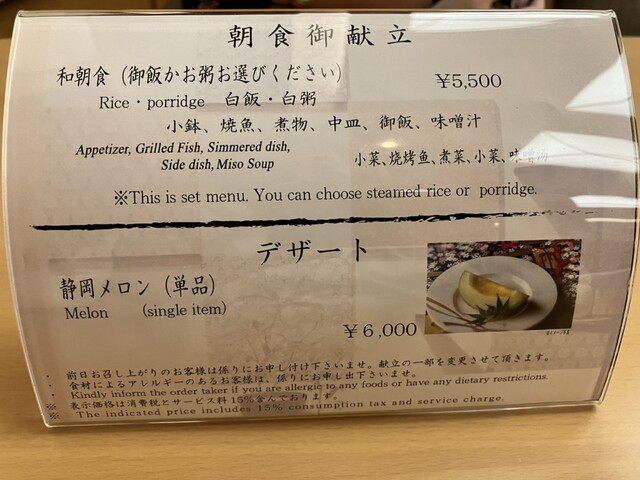 朝食御献立
和朝食（御飯かお粥お選びください） ¥5,500
Rice・porridge 白飯・白粥
小鉢、焼魚、煮物、中皿、御飯、味噌汁
Appetizer, Grilled Fish, Simmered dish,
Side dish, Miso Soup
小菜、烧烤鱼、煮菜、小菜、味噌汤
※This is set menu. You can choose steamed rice or porridge.
デザート
静岡メロン（単品）
Melon (single item)
¥6,000
・ 前日お召し上がりのお客様は係りにお申し付け下さいませ。献立の一部を変更させて頂きます。
・ 食材によるアレルギーのあるお客様は、係りにお申し出下さいませ。
・ Kindly inform the order taker if you are allergic to any foods or have any dietary restrictions.
※ 表示価格は消費税とサービス料15%含んでおります。
※ The indicated price includes 15% consumption tax and service charge.